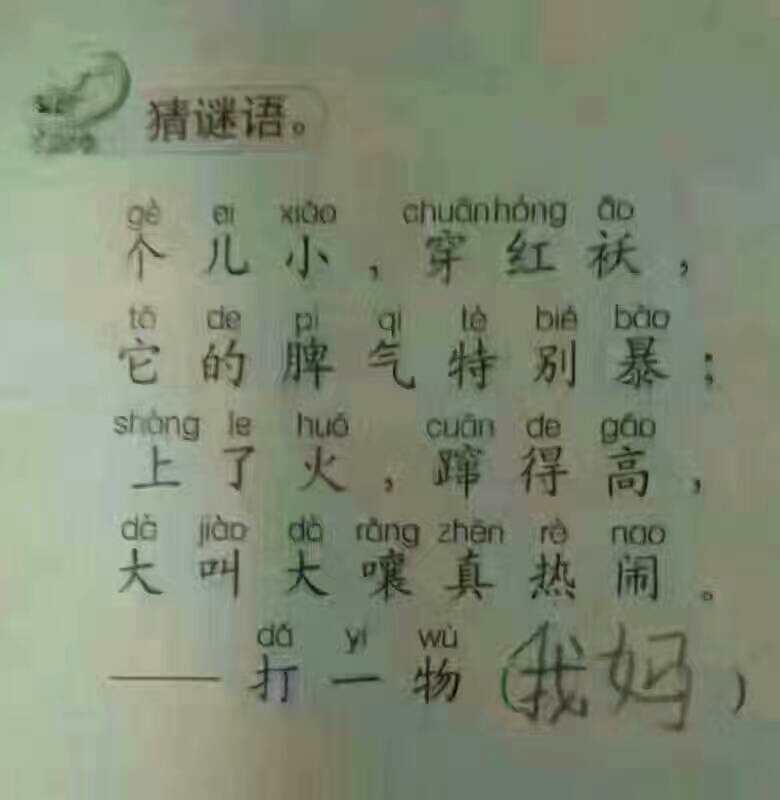 猜谜语。
gè er xiǎo chuānhóng ǎo
个儿小，穿红袄，
tā de pí qi tè bié bào
它的脾气特别暴；
shàng le huǒ cuān de gāo
上了火，蹿得高，
dà jiào dà rǎng zhēn rè nao
大叫大嚷真热闹。
dǎ yí wù
——打一物（我妈）